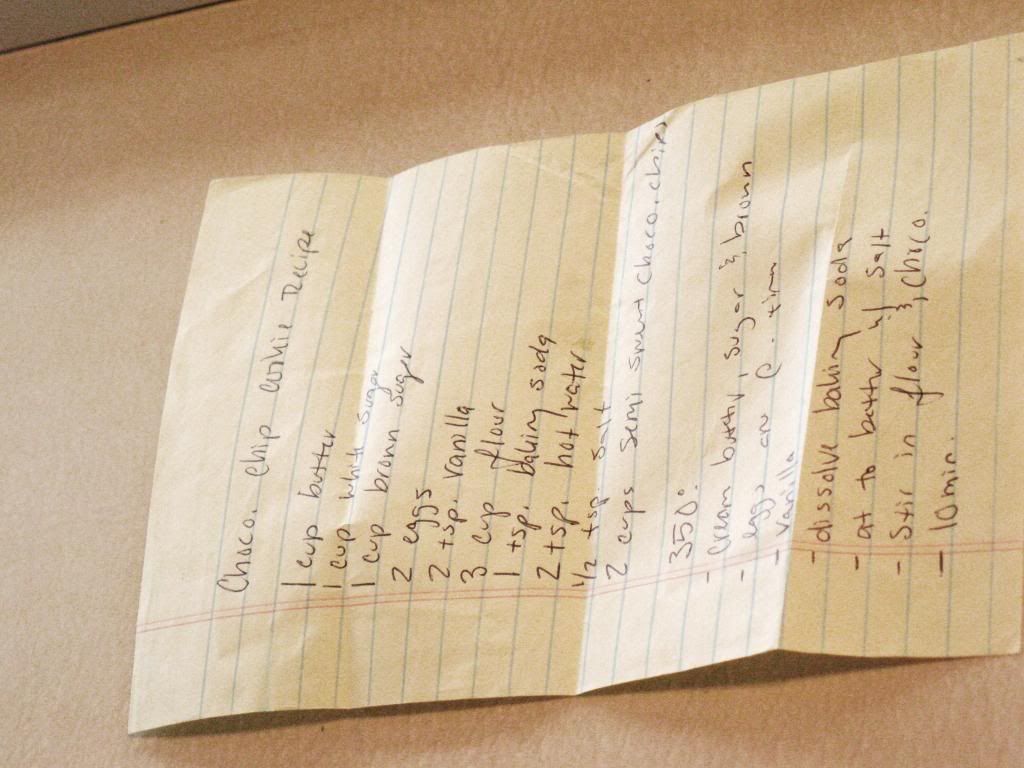 Choco. Chip cookie recipe
1 cup butter
1 cup white sugar
1 cup brown sugar
2 eggs
2 tsp. vanilla
3 cup flour
1 tsp. baking soda
2 tsp. hot water
1/2 tsp. salt
2 cups semi sweet choco. chips
350°
- cream butter, sugar & brown
- eggs one @ . time
- vanilla
- dissolve baking soda
- at to batter w/ salt
- Stir in flour &, choco.
- 10 min.